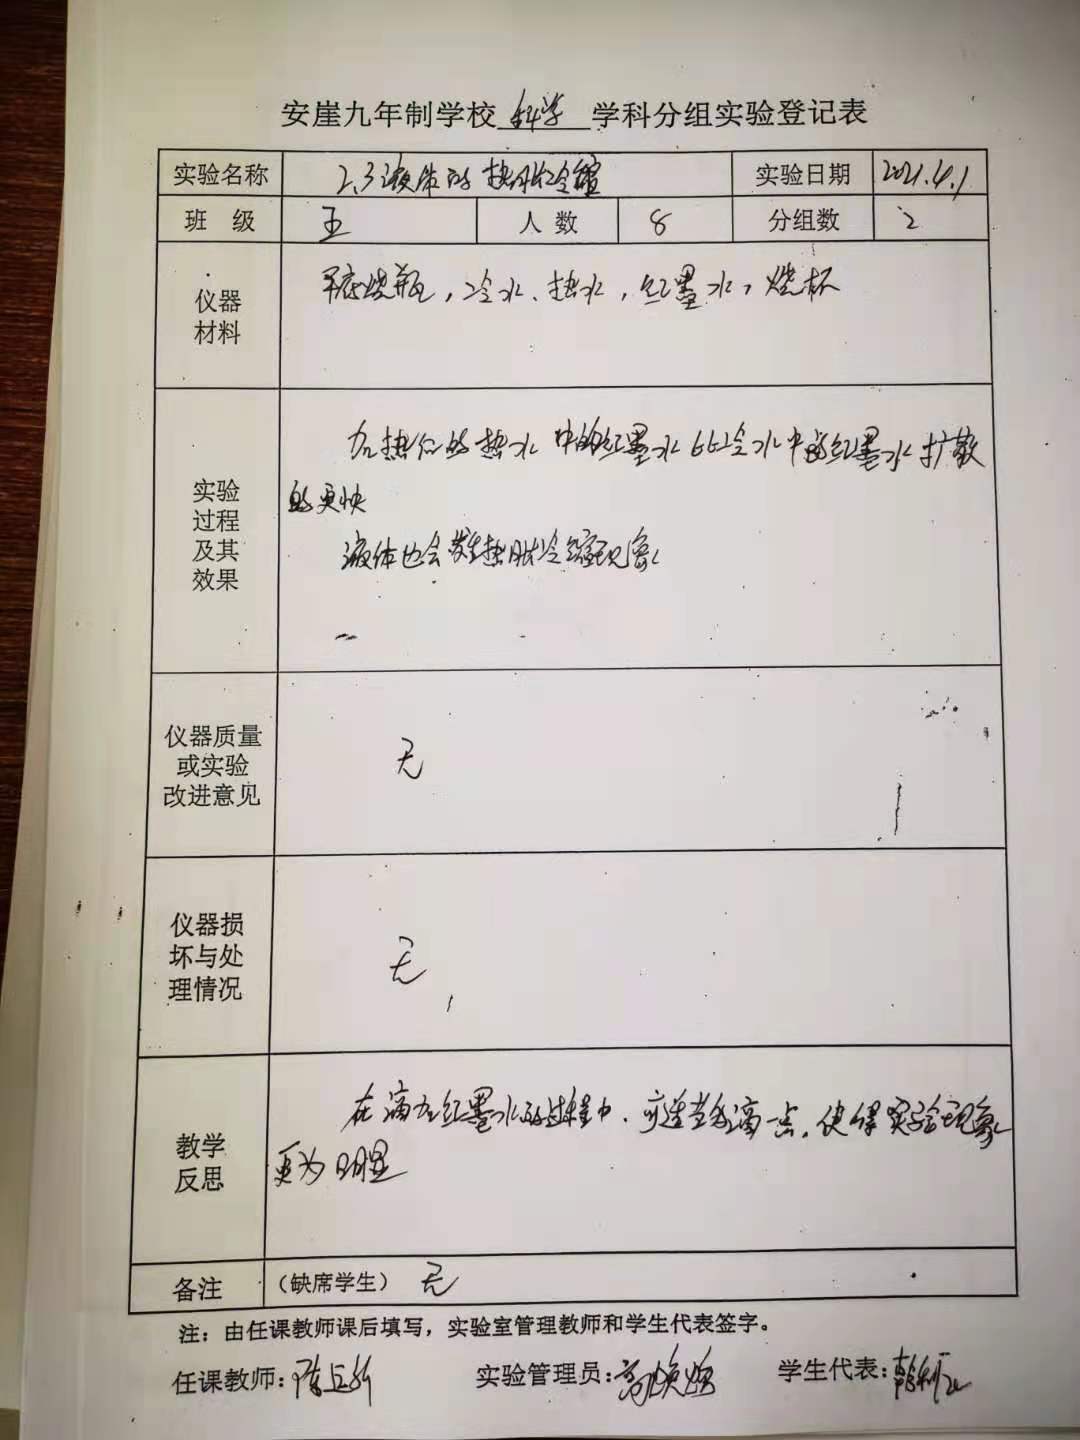 安崖九年制学校 科学 学科分组实验登记表
实验名称 2.3液体的热胀冷缩 实验日期 2021.4.1
班 级 五 人 数 8 分组数 2
仪器
材料
平底烧瓶，冷水、热水，红墨水，烧杯
实验
过程
及其
效果
加热后的热水中的红墨水比冷水中的红墨水扩散
的更快
液体也会发生热胀冷缩现象
仪器质量
或实验
改进意见
无
仪器损
坏与处
理情况
无
教学
反思
在滴加红墨水的过程中，可适当多滴一点，使得实验现象
更为明显
备注 （缺席学生） 无
注：由任课教师课后填写，实验室管理教师和学生代表签字。
任课教师： 实验管理员： 学生代表：